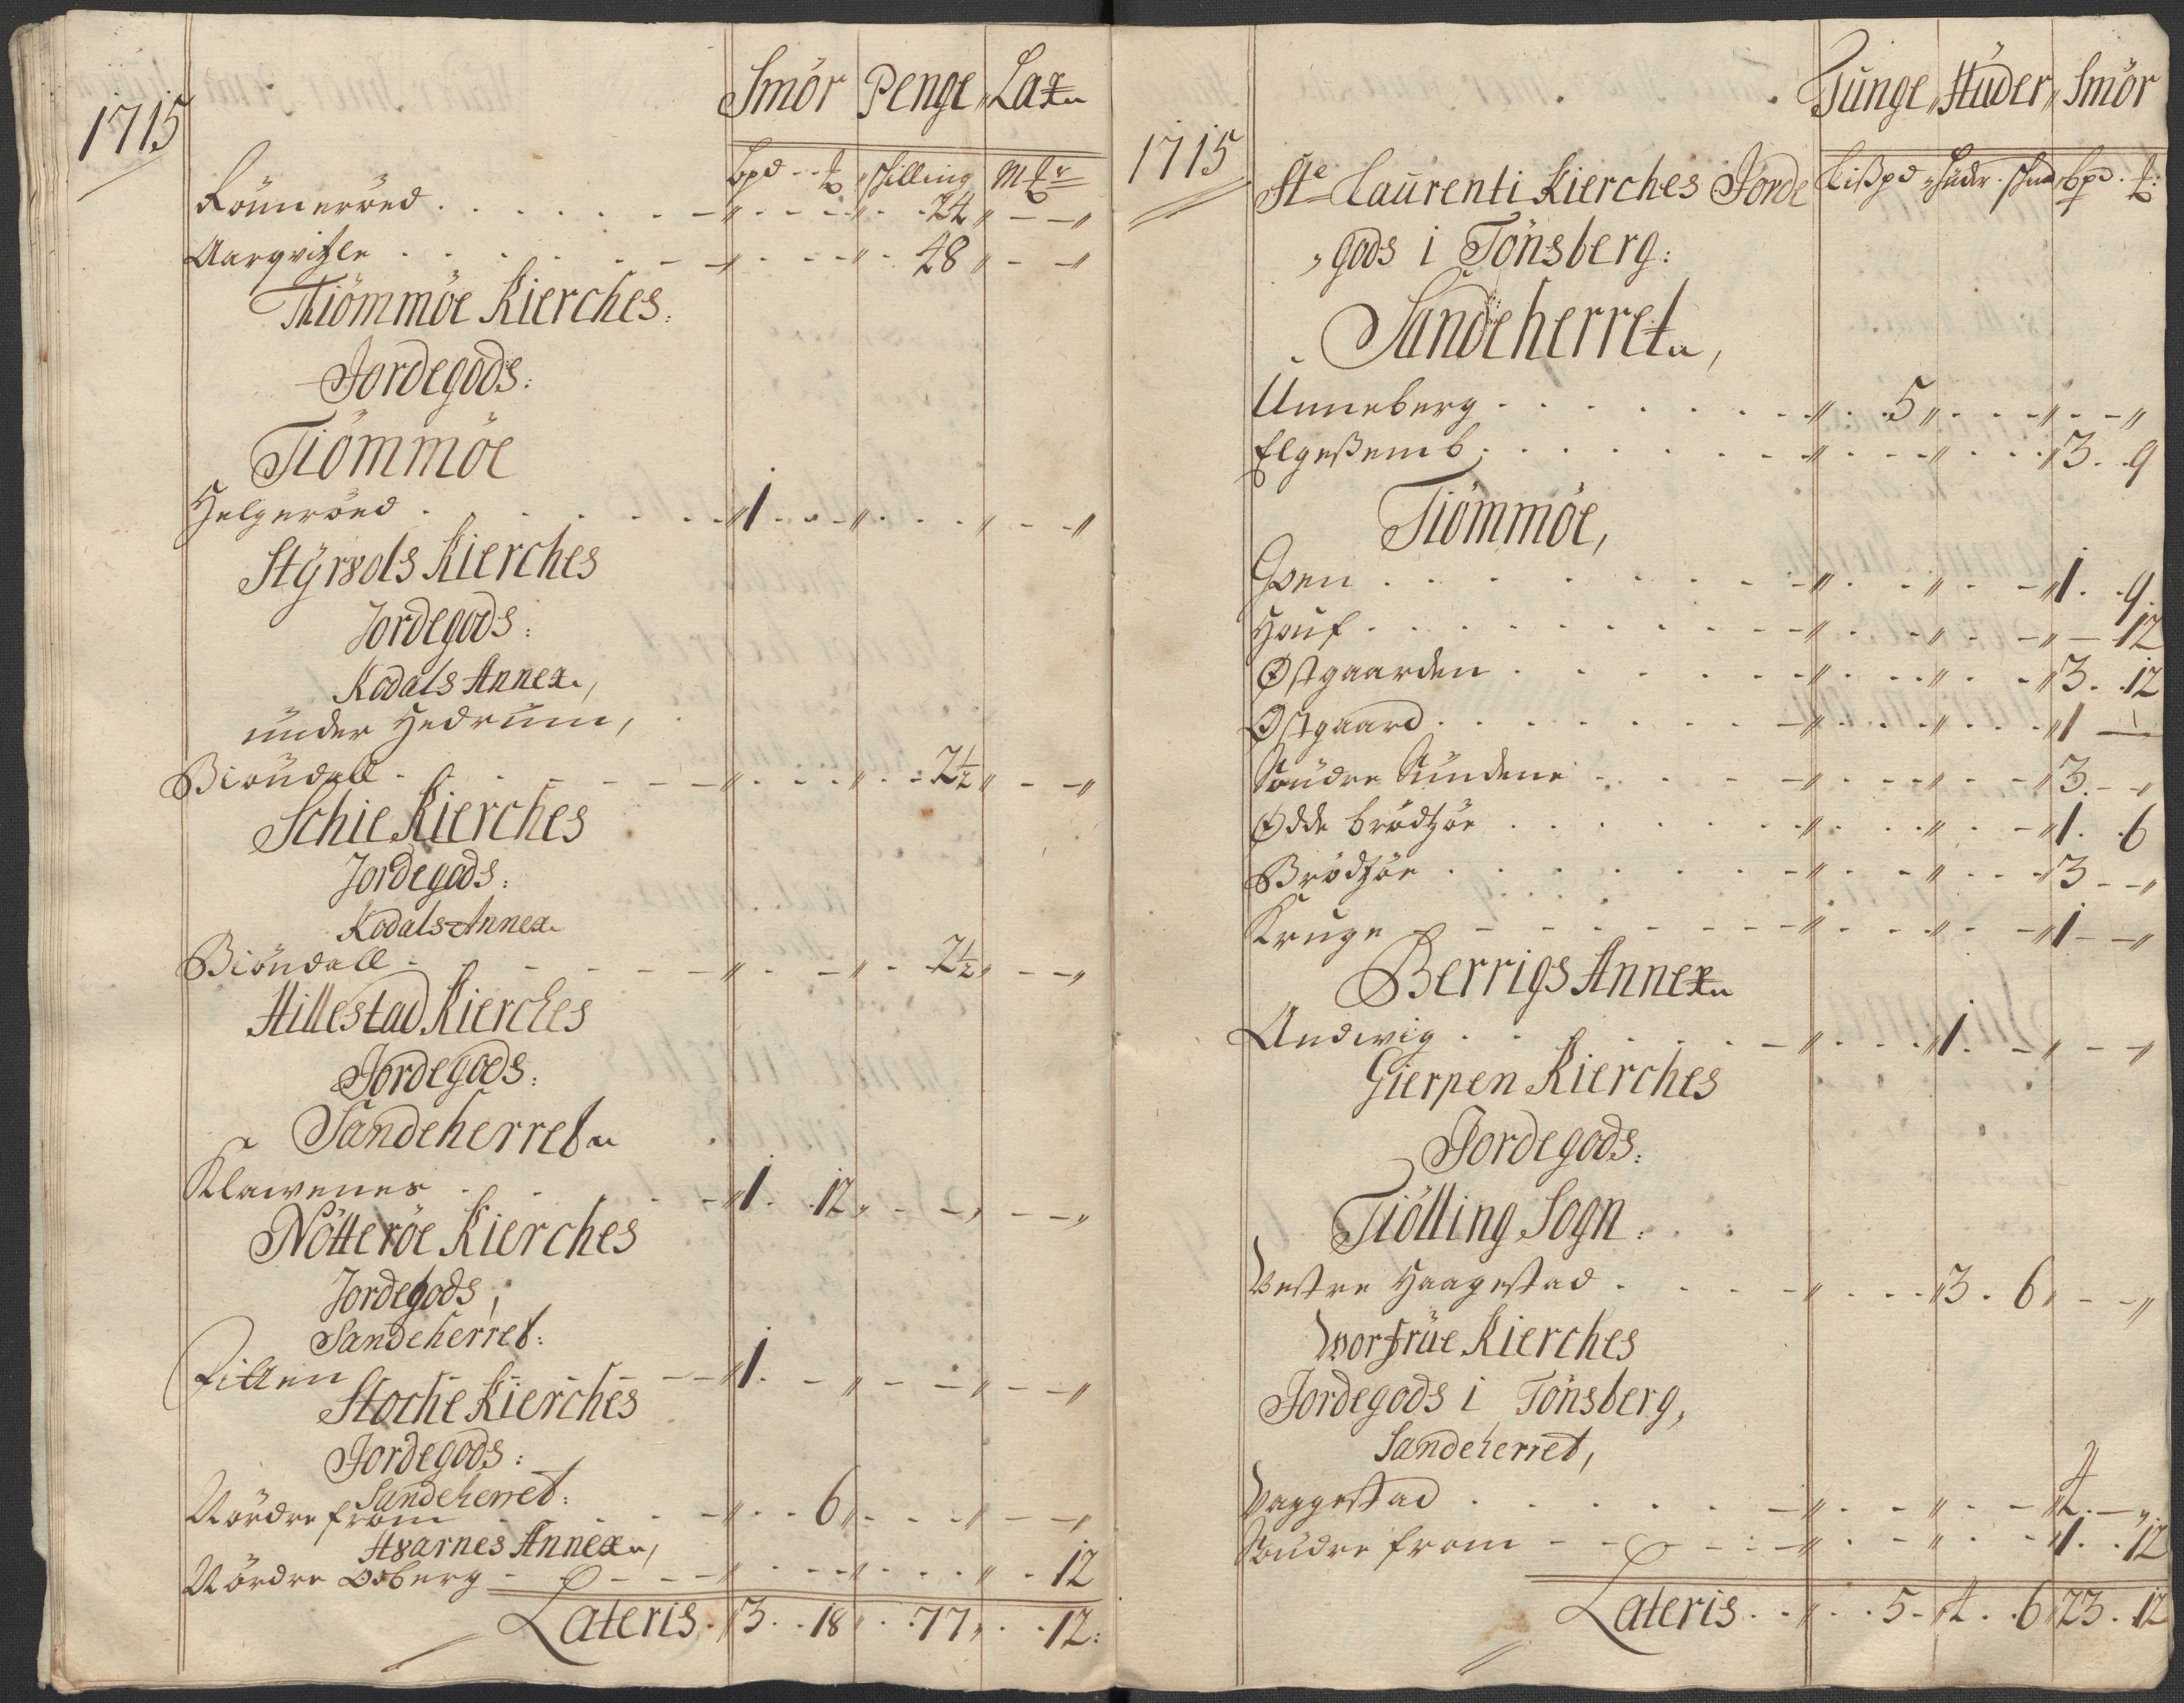 1715
Smör Penge Lax
Lpd ℔ skilling Mk
Rönneröed 24
Aarqvisle 48
Tiömmöe Kierches
Jordegods:
Tiömmöe
Helgeröed 1
Styrvols Kierches
Jordegods:
Kodals Annex,
under Hedrum,
Biöndall 2½
Schie Kierches
Jordegods:
Kodals Annex
Biöndall 2½
Hillestad Kierches
Jordegods:
Sandeherret
Klawenes 1 12
Nötteröe Kierches
Jordegods,
Sandeherret:
1
Stoche Kierches
Jordegods:
Sandeherret:
Nördre from 6
Hvarnes Annex,
Nördre Odberg 12
Lateris 3 18 77 12:
1715
Tunge Huder Smör
Lißpd Huder skind Bpd ℔:
Ste Laurenti Kierches Jorde
gods i Tönsberg:
Sandeherret,
Unneberg 5
Elgeßemb 3 9
Tiömmöe,
Hvenn 1 9
Houf 12
Østgaarden 3 12
Østgaard 1
Søndre Sundene 3
Ødde brödtzöe 1 6
Brödtzöe 3
Kruge 1
Berrigs Annex
Andwig 1
Gierpen Kierches
Jordegods:
Tiölling Sogn:
Vestre Haagestad 3 6
Worfrüe Kierches
Jordegods i Tönsberg,
Sandeherret,
Vaggestad 4
Söndre from 1 12
Lateris 5 4 6 23 12